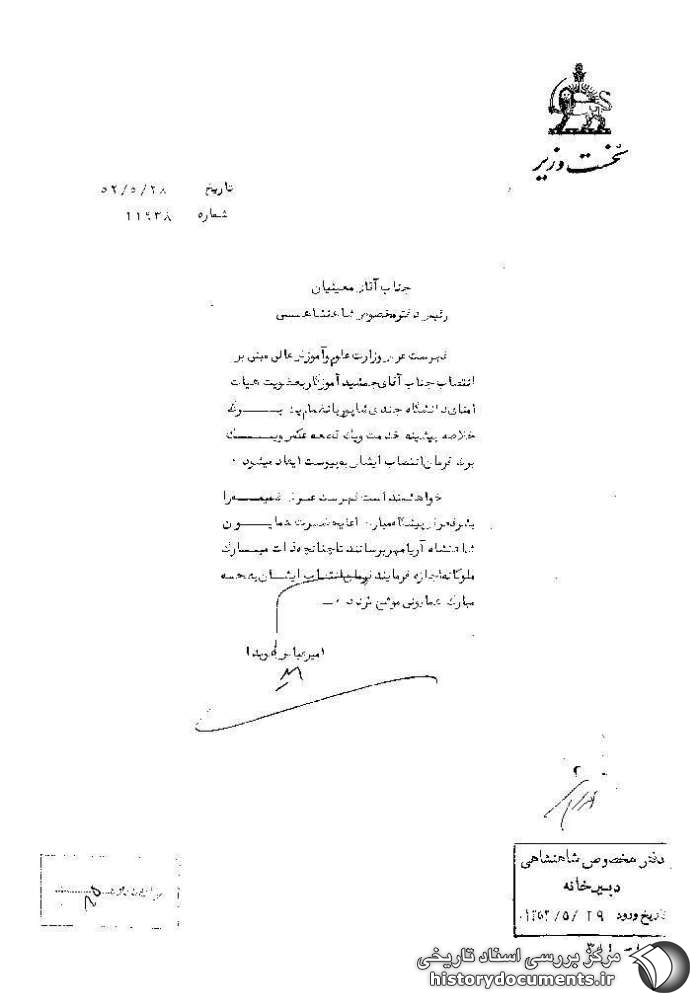 نخست وزیر
تاریخ ۵۲/۵/۲۸
شماره ۱۱۹۳۸
جناب آقای معینیان
رئیس دفتر مخصوص شاهنشاهی
فهرست عرایض وزارت علوم و آموزش عالی مبنی بر
انتصاب جناب آقای جمشید آموزگار بعضویت هیات
امنای دانشگاه جندی شاپور بانضمام یک برگ
خلاصه پیشینه خدمت ویک قطعه عکس ویک
برگ فرمان انتصاب ایشان به پیوست ایفاد میشود .
خواهشمند است فهرست عرایض ضمیمه را
بشرفعرض پیشگاه مبارک اعلیحضرت همایون
شاهنشاه آریامهر برسانند تا چنانچه ذات مبارک
ملوکانه اجازه فرمایند فرمان انتصاب ایشان به صحه
مبارک همایونی موشح گردد .
امیرعباس هویدا
دفتر مخصوص شاهنشاهی
دبیرخانه
تاریخ ورود ۱۳۵۲/۵/۲۹
مرکز بررسی اسناد تاریخی
historydocuments.ir